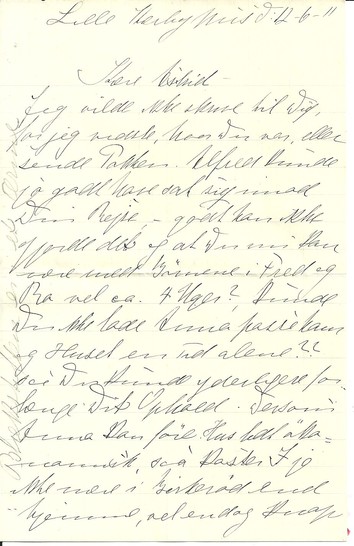 Lille Kærbygaard d: 12-6-11
Kære Astrid –
Jeg vilde ikke skrive til Dig,
før jeg vidste, hvor Du var, eller
sende Pakken. Alfred kunde
jo godt have sat sig imod
Din Rejse, – godt han ikke
gjorde det og at Du nu kan
være med Børnene i Fred og
Ro vel ca. 4 Uger?, kunde
Du ikke lade Anna passe ham
og Huset en Tid alene??
så Du kunde yderligere for-
længe Dit Ophold. Dersom
Anna kan føre Hus lidt øko-
nomisk, så koster I jo
ikke mere i Birkerød end
hjemme, vel endog knap